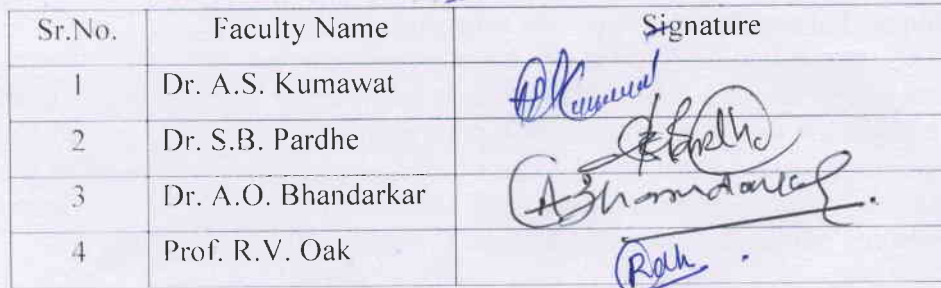 Sr.No. Faculty Name Signature
1 Dr. A.S. Kumawat
2 Dr. S.B. Pardhe
3 Dr. A.O. Bhandarkar
4 Prof. R.V. Oak